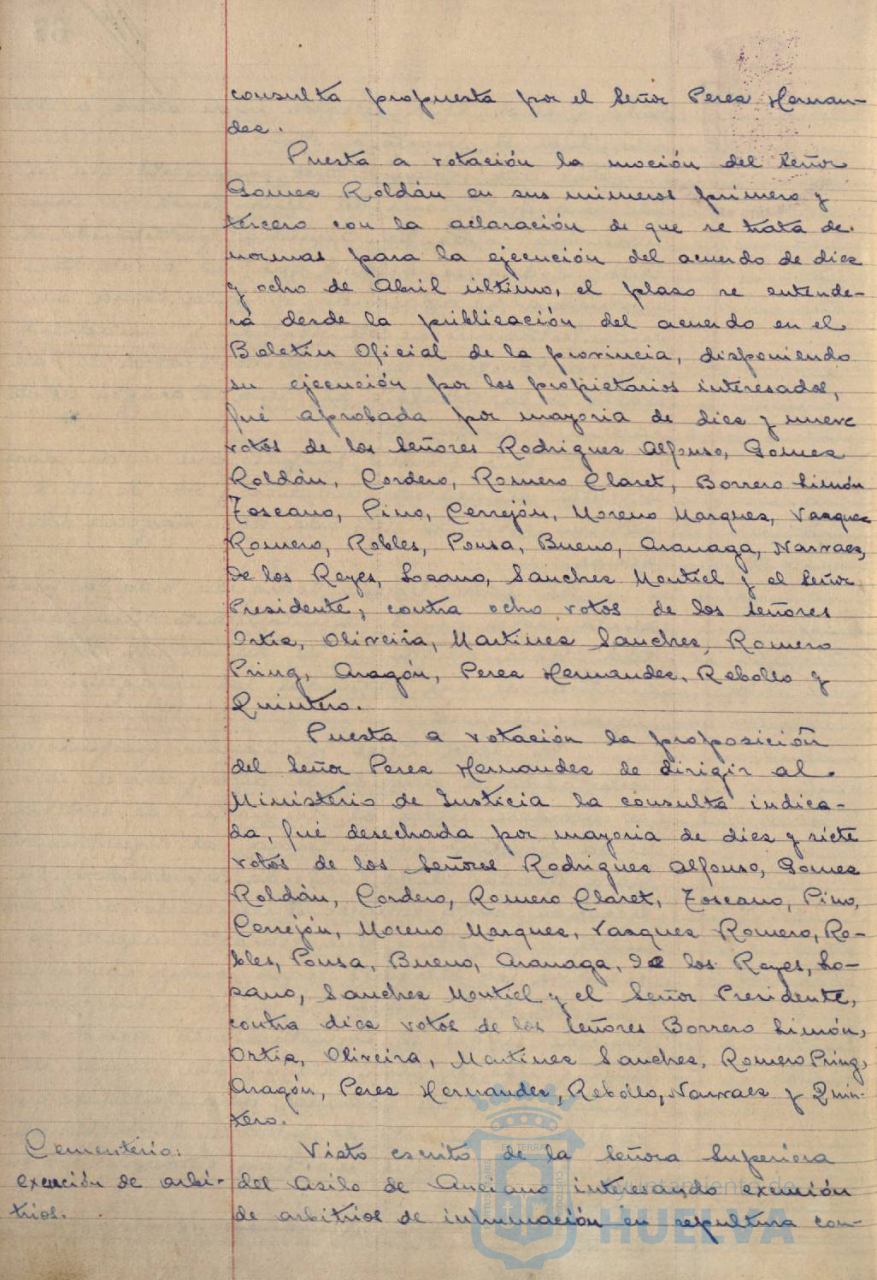 consulta propuesta por el Señor Perez Hernan-
dez.
Puesta a votación la moción del Señor
Gomez Roldán en sus números primero y
tercero con la aclaración de que se trata de
normas para la ejecución del acuerdo de diez
y ocho de Abril último, el plazo se entende-
rá desde la publicación del acuerdo en el
Boletín Oficial de la provincia, disponiendo
su ejecución por los propietarios interesados,
fué aprobada por mayoria de diez y nueve
votos de los Señores Rodriguez Alfonso, Gomez
Roldán, Cordero, Romero Claret, Borrero Limón
Toscano, Pino, Cerrejón, Moreno Marquez, Vazquez
Romero, Robles, Ponsa, Bueno, Aranaga, Narvaez,
De los Reyes, Lozano, Sanchez Montiel y el Señor
Presidente, contra ocho votos de los Señores
Ortiz, Oliveira, Martinez Sanchez, Romero
Pring, Aragón, Perez Hernandez, Rebollo y
Quintero.
Puesta a votación la proposición
del Señor Perez Hernandez de dirigir al
Ministerio de Justicia la consulta indica-
da, fué desechada por mayoria de diez y siete
votos de los Señores Rodriguez Alfonso, Gomez
Roldán, Cordero, Romero Claret, Toscano, Pino,
Cerrejón, Moreno Marquez, Vazquez Romero, Ro-
bles, Ponsa, Bueno, Aranaga, De los Reyes, Lo-
zano, Sanchez Montiel y el Señor Presidente,
contra diez votos de los Señores Borrero Limón,
Ortiz, Oliveira, Martinez Sanchez, Romero Pring,
Aragón, Perez Hernandez, Rebollo, Narvaez y Quin-
tero.
Cementerio:
exención de arbi-
trios.
Visto escrito de la Señora Superiora
del Asilo de Anciano interesando exención
de arbitrios de inhumación en sepultura con-
Ayuntamiento de
HUELVA